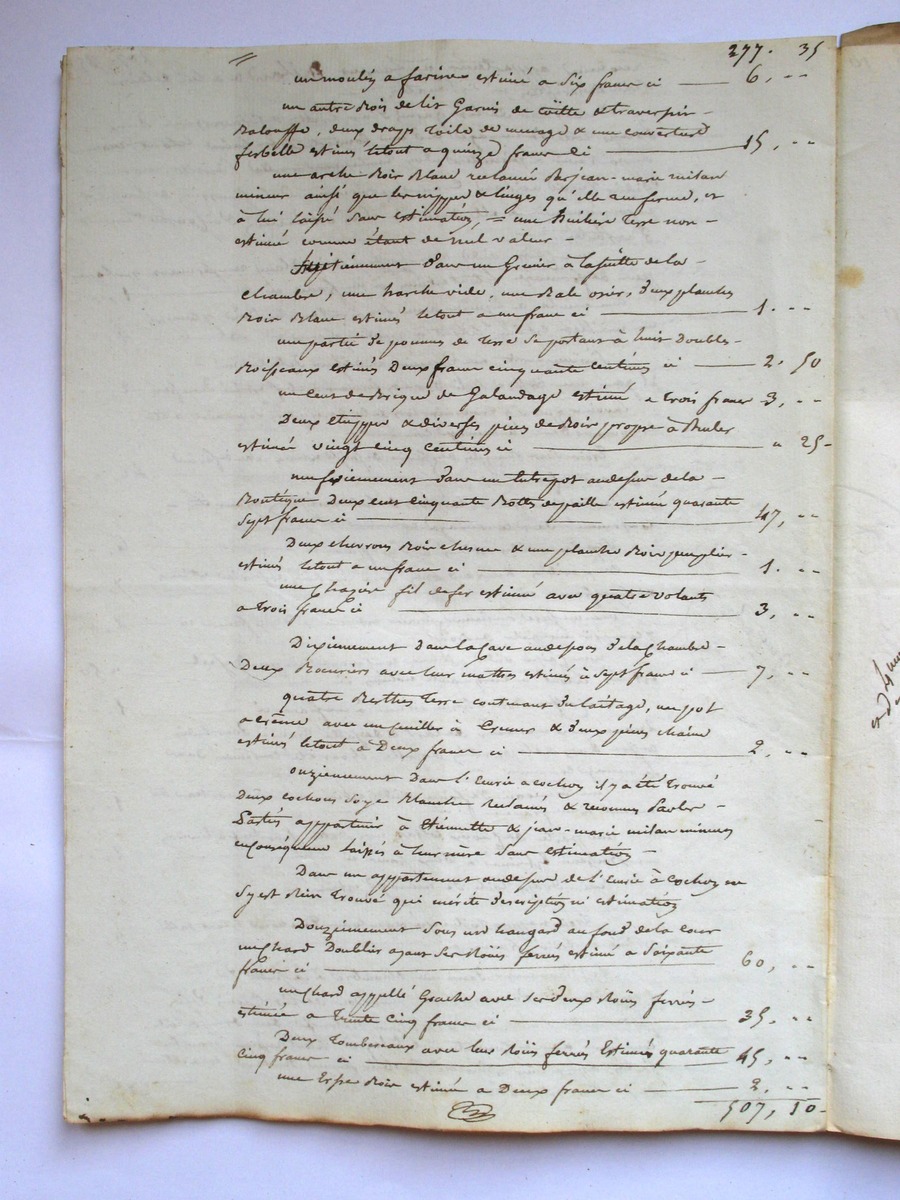 277. 35
un moulin a farine estimé a six francs ci — 6, --
un autre Bois de lit Garni de coitte & traversin
Balouffe, deux draps toile de menage & une couverture
estimés letout a quinze francs ci — 15, --
une arche Boir Blanc reclamée par jean-marie milan
mineur ainsi que les nippes & linges qu'elle renferme, et
à lui laissé sans estimation, = une Terre non
estimée comme étant de nul valeur -
dans un Grenier à la suitte de la
chambre, une harche vide, une Bale osier, deux planches
Boir Blanc estimés letout a un franc ci — 1. --
une partie de pommes de Terre se portant à huit Doubles
Boisseaux estimés Deux francs cinquante Centimes ci — 2. 50
un Cent de Brique de Galandage estimé a Trois francs 3, --
Deux & diverses pieces de Boir propre à Bruler
estimés vingt cinq centimes ci — " 25-
neufviemement dans un Entrepot audessus de la
Boutique Deux cent cinquante Bottes de paille estimées quarante
sept francs ci — 47, --
Deux chevrons Boir chesne & une planche Boir peuplier
estimés letout a un franc ci — 1. --
une fil de fer estimée avec quatre volants
a Trois francs ci — 3, --
Dixiemement Dans la Cave audessous de la Chambre
Deux avec leur estimés à sept francs ci — 7, --
quatre Terre contenant du laitage, un pot
a crême avec un cuiller à Cremer & deux pieces chaine
estimés letout à Deux francs ci — 2, --
onziemement Dans l'Ecurie a cochon il y a été Trouvé
Deux cochons soye Blanche reclamés & reconnus par les
Parties appartenir à Etiennette & jean-marie milan mineurs
enconséquence laissés à leur mère sans estimation -
Dans un appartement audessus de l'Ecurie à Cochon ne
sy est Rien Trouvé qui mérite description ni estimation
Douziemement sous un hangard au fond de la Cour
un Chard Doublier ayant ses Roües ferrés estimé a soixante
francs ci — 60, --
un Chard appellé Gache avec ses deux Roües ferrés
estimé a Trente cinq francs ci — 35, --
Deux Tombereaux avec leur Roües ferrés Estimés quarante
cinq francs ci — 45, --
une Erse Boir estimée a Deux francs ci — 2. --
507, 10-